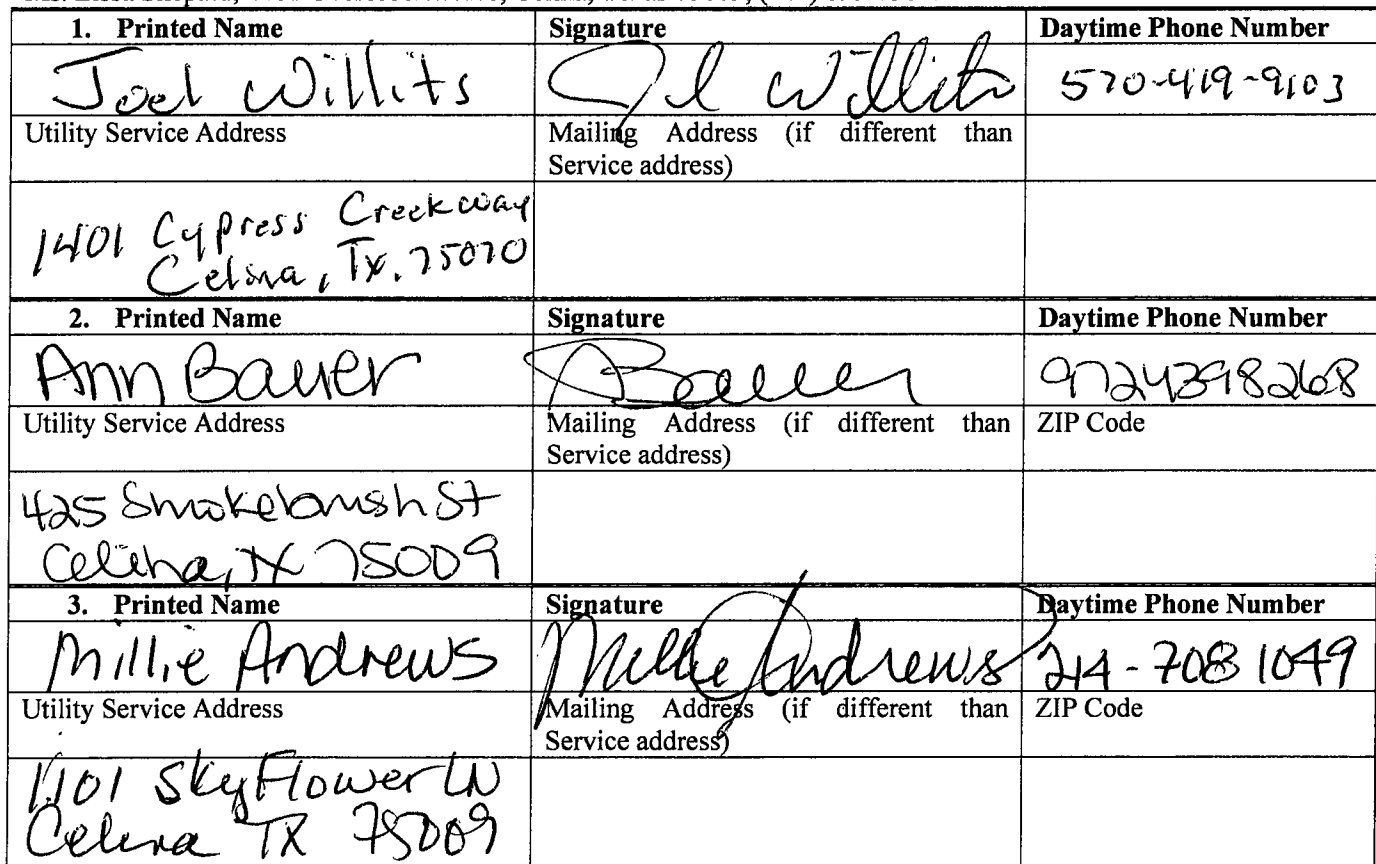 1. Printed Name Signature Daytime Phone Number
Joel Willits Joel Willits 570-419-9103
Utility Service Address Mailing Address (if different than
Service address)
1401 Cypress Creek way
Celina, Tx. 75070
2. Printed Name Signature Daytime Phone Number
Ann Bauer Bauer 9724398268
Utility Service Address Mailing Address (if different than ZIP Code
Service address)
425 Smokebrush St
Celina, TX 75009
3. Printed Name Signature Daytime Phone Number
Millie Andrews Millie Andrews 214-708 1049
Utility Service Address Mailing Address (if different than ZIP Code
Service address)
1101 Skyflower LN
Celina TX 75009